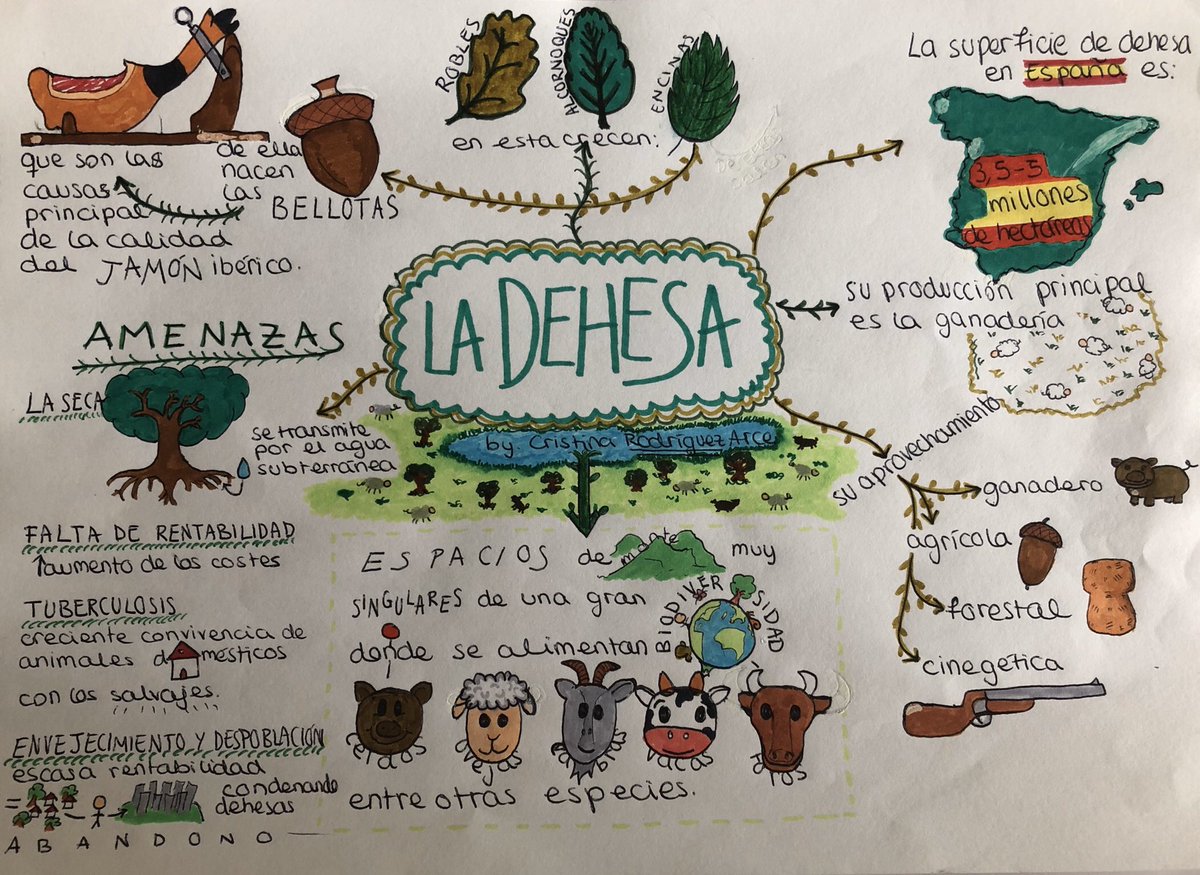 ROBLES
ALCORNOQUES
ENCINAS
en esta crecen:
La superficie de dehesa
en España es:
3,5-5
millones
de hectáreas
de ella
nacen
las
BELLOTAS
que son las
causas
principal
de la calidad
del JAMÓN ibérico.
LA DEHESA
by Cristina Rodríguez Arce
su producción principal
es la ganadería
su aprovechamiento
ganadero
agrícola
forestal
cinegética
AMENAZAS
LA SECA
se transmite
por el agua
subterránea
FALTA DE RENTABILIDAD
↑aumento de los costes
TUBERCULOSIS
creciente convivencia de
animales domésticos
con los salvajes.
ENVEJECIMIENTO Y DESPOBLACIÓN
escasa rentabilidad
= - → condenando
dehesas
ABANDONO
ESPACIOS de monte muy
SINGULARES de una gran
BIODIVERSIDAD
donde se alimentan
cerdos
ovejas
cabras
vacas
toros
entre otras especies.